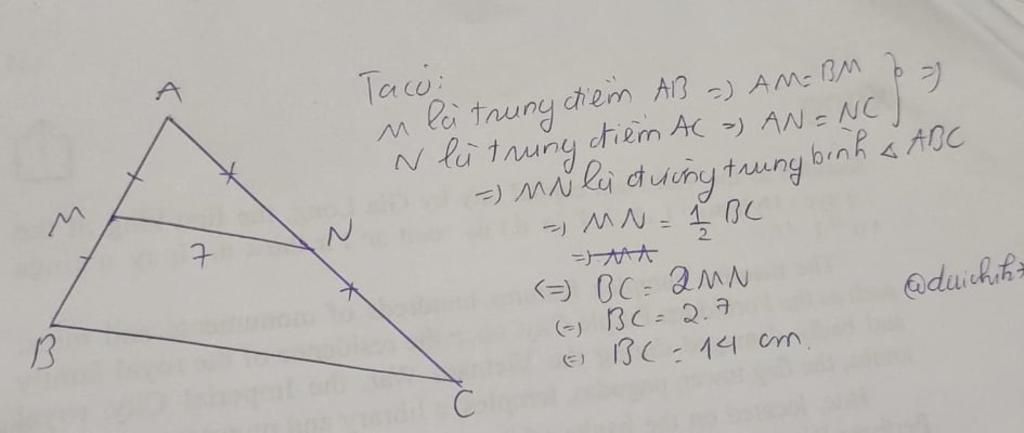 Ta có:
M là trung điểm AB => AM = BM } =>
N là trung điểm AC => AN = NC
=> MN là đường trung bình △ ABC
=> MN = 1/2 BC
(=) BC = 2MN
(=) BC = 2.7
(=) BC = 14 cm.
A
M
N
7
B
C